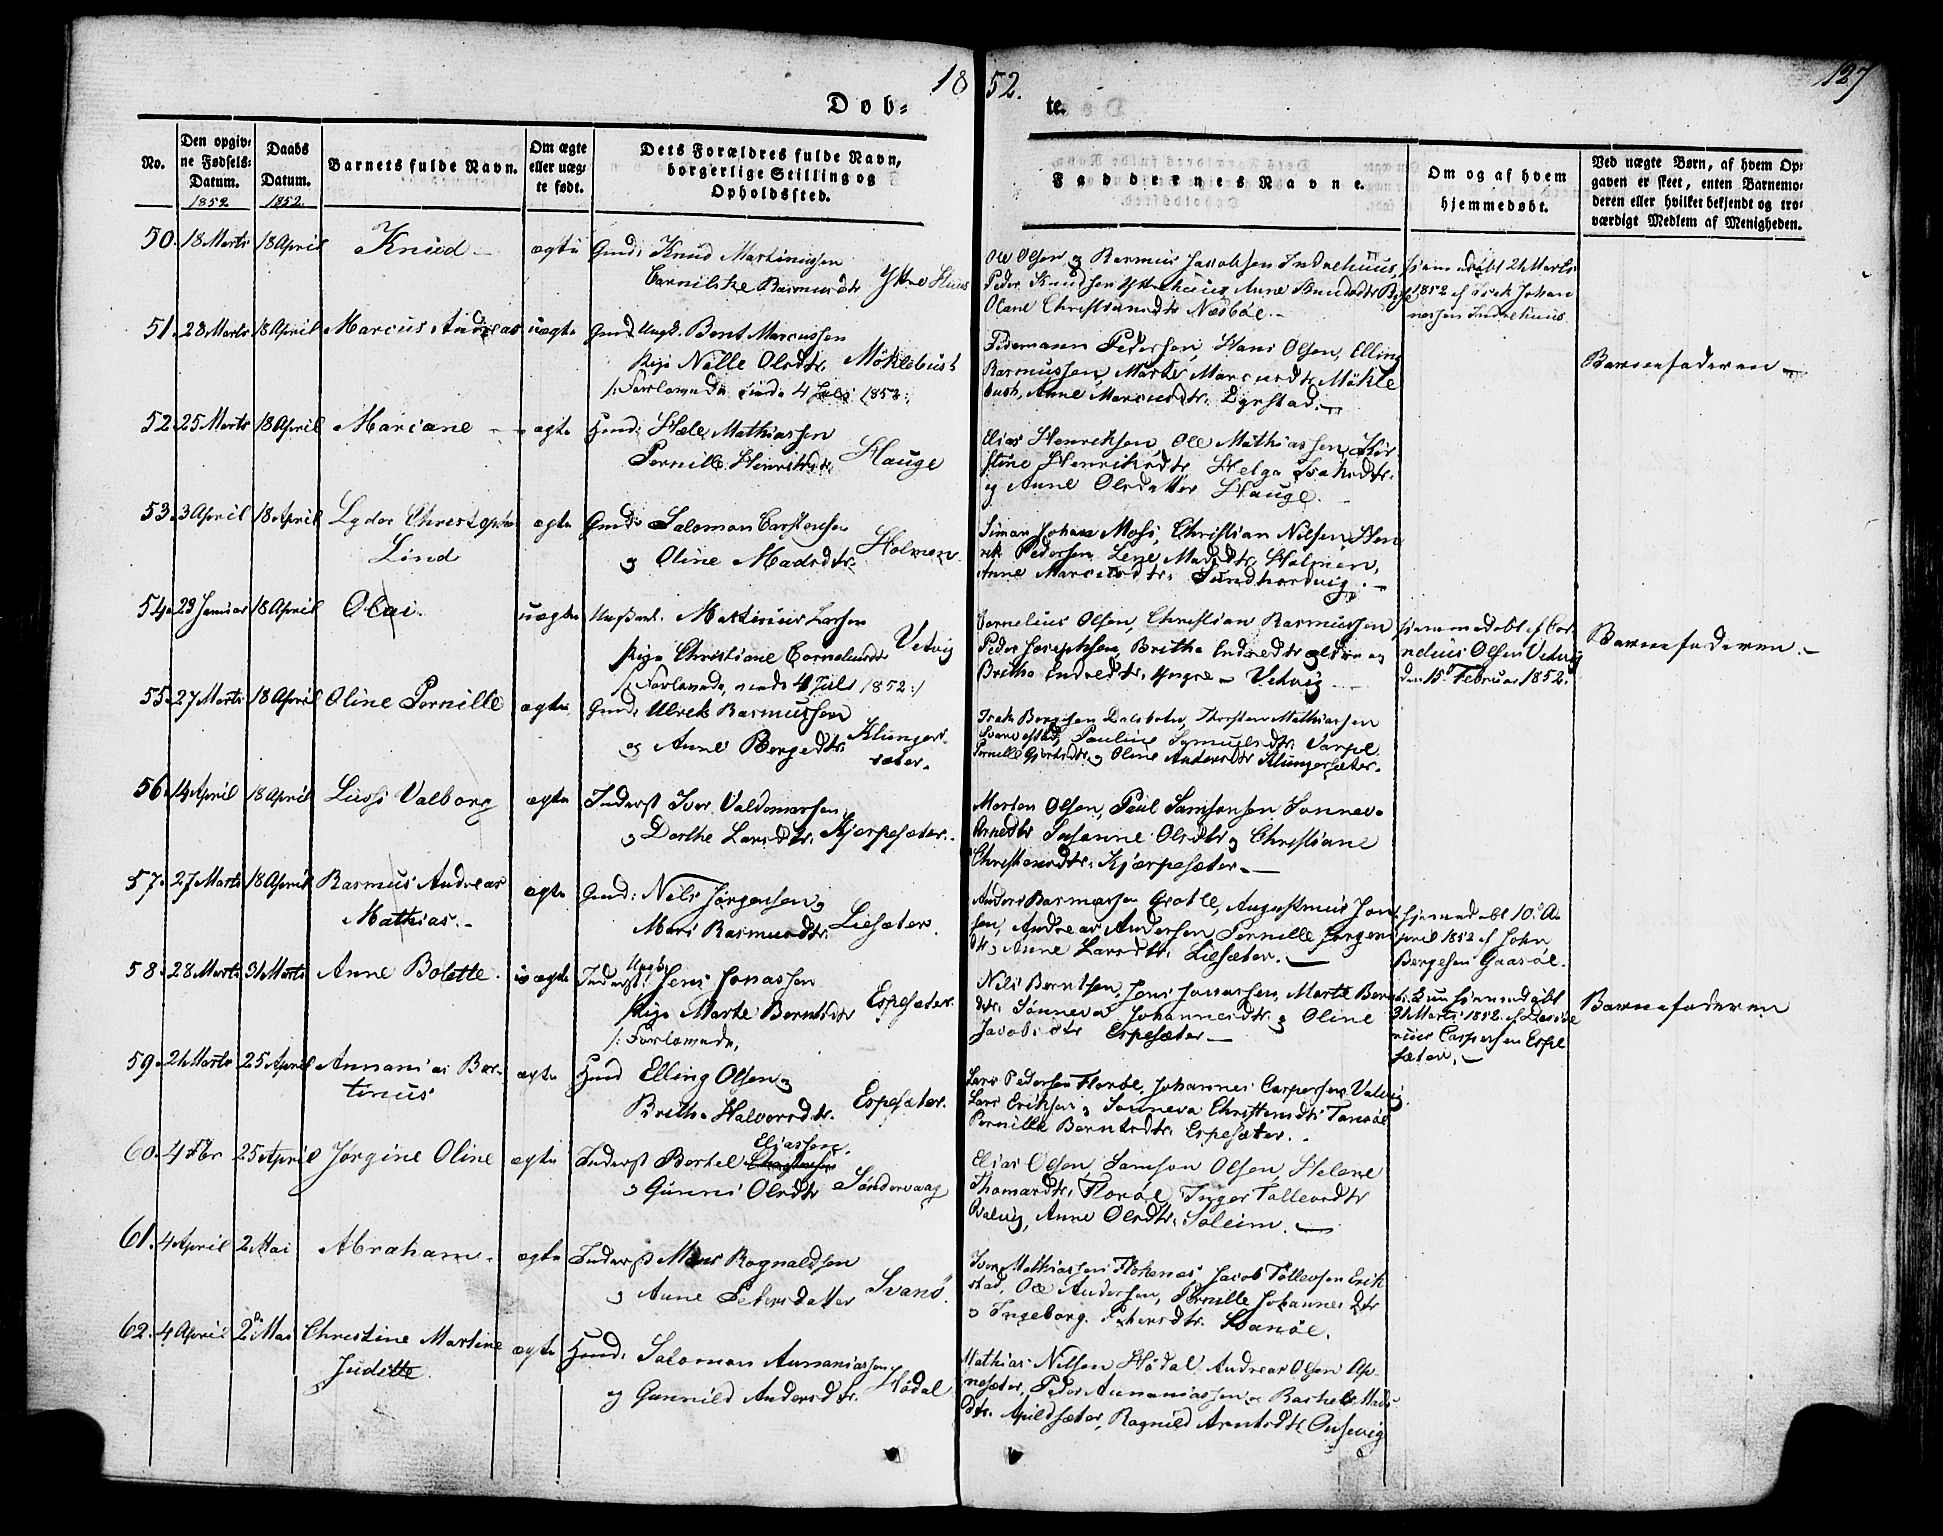 18 52. 127
Døb- te.
No.
Den opgiv-
ne Fødsels-
Datum.
1852
Daabs
Datum.
1852.
Barnets fulde Navn.
Om ægte
eller uæg-
te født.
Dets Forældres fulde Navn,
borgerlige Stilling og
Opholdssted.
Faddernes Navne.
Om og af hvem
hjemmedøbt.
Ved uægte Børn, af hvem Op-
gaven er skeet, enten Barnemo-
deren eller hvilket bekjendt og tro-
værdigt Medlem af Menigheden.
50. 18 Marts 18 April Knud ægte Gmd: Knud Martinussen
Rasmusdtr Ytre Huus
Ole Olsen og Rasmus Jacobsen Indrehuus,
Peder Knudsen Ytrehuus Anne Knudsdtr
Olane Christiansdtr Næsbøe.
hjemmedøbt 21 Marts
1852 af Johan
nessen Indrehuus.
51. 28 Marts 18 April Marcus Andreas uægte Gmd Ungk. Bent Marcussen
Pige Nille Olsdtr. Møklebust
/: Forlovede siden 4 Juli 1852 :/
Pedersen, Hans Olsen, Elling
Rasmussen, Marte Marcusdtr Mökle
bust, Anne Marcusdtr.
Barnefaderen
52. 25 Marts 18 April Mariane ægte Huusmd: Mathiassen
Pernille Henriksdtr. Hauge
Elias Henriksen, Ole Mathiassen, Kir-
stine Henriksdtr Helga Isaksdtr.
og Anne Olsdatter Hauge.
53. 3 April 18 April Lyder Christopher
Lind
ægte Gmd: Salomon Carstensen
og Oline Madsdtr. Holmen
Simon Johan Christian Nilsen, Hen
rik Pedersen Lene Madsdtr. Holmen,
Anne
54. 23 Januar 18 April Olai. uægte Martinus Larsen
Pige Christiane Corneliusdtr Vetvig
/: Forlovede, siden 4 Juli 1852 :/
Cornelius Olsen, Christian Rasmussen,
Peder Josephsen, Britha Endredtr ældre og
Britha Endredtr. yngre Vetvig
hjemmedøbt af Cor-
nelius Olsen Vetvig
den 15 Februar 1852.
Barnefaderen.
55. 27 Marts 18 April Oline Pernille ægte Gmd: Ulrik Rasmussen
og Anne Børgedtr Klunger-
sæter.
Isak Børgesen Thorsten Mathiassen
Pauline Samuelsdtr.
Pernille og Oline Andersdtr Klungersæter.
56. 14 April 18 April Lussi Valborg ægte Inderst Iver Valdemarsen
og Dorthe Larsdtr. Kjærpesæter.
Morten Olsen, Poul Samsonsen Sonneva
Arnedtr Susanne Olsdtr og Christiane
Christensdtr. Kjærpesæter.
57. 27 Marts 18 April Rasmus Andreas
Mathias.
ægte Gmd: Nils Jørgensen og
Mari Rasmusdtr. Liesæter.
Anders Rasmussen Grotle, Augustinus Jan
sen, Andreas Andersen Pernille Jørgens
dtr og Anne Larsdtr. Liesæter.
hjemmedøbt 10. A-
pril 1852 af John
Børgesen Gaasøe.
58. 28 Marts 31 Marts Anne Bolette. uægte Inderst Ungk. Jens Jonassen
Pige Marte Berntsdtr Espesæter.
/: Forlovede,
Nils Berntsen, Jens Jonassen, Marte Bernt
dtr. Sønneva Johannesdtr. og Oline
Jacobsdtr Espesæter
hjemmedøbt
31 Marts 1852 af
Caspersen Espe
sæter.
Barnefaderen
59. 21 Marts 25 April Annanias Ber-
tinus
ægte Huusmd Elling Olsen og
Brithe Halvorsdtr. Espesæter.
Lars Pedersen Florøe, Johannes Caspersen
Lars Eriksen og Sonneva Christensdtr Tansøe
Pernille Berntsdtr. Espesæter.
60. 4 Febr 25 April Jørgine Oline ægte Inderst Bertel Eliassen.
og Gunni Olsdtr Søndervaag
Elias Olsen, Samson Olsen, Helene
Thomasdtr. Florøe, Inger Tollevsdtr
Anne Olsdtr. Soleim.
61. 4 April 2 Mai Abraham. ægte Inderst Mons Rognaldsen
og Anne Petersdatter Svanø.
Iver Mathiassen Jacob Tollevsen Erik
stad, Ole Andersen, Pernille Johannesdtr
og Ingeborg Petersdtr. Svanøe.
62. 4 April 2 Mai Christine Martine
Juditte.
ægte Huusmd: Salomon Annaniassen
og Gunnild Andersdtr. Hødal
Mathias Nilsen Hødal, Andreas Olsen Ap-
nesæter, Peder Annaniassen og Mads
dtr. Apildsæter, Ragnild Arntsdtr